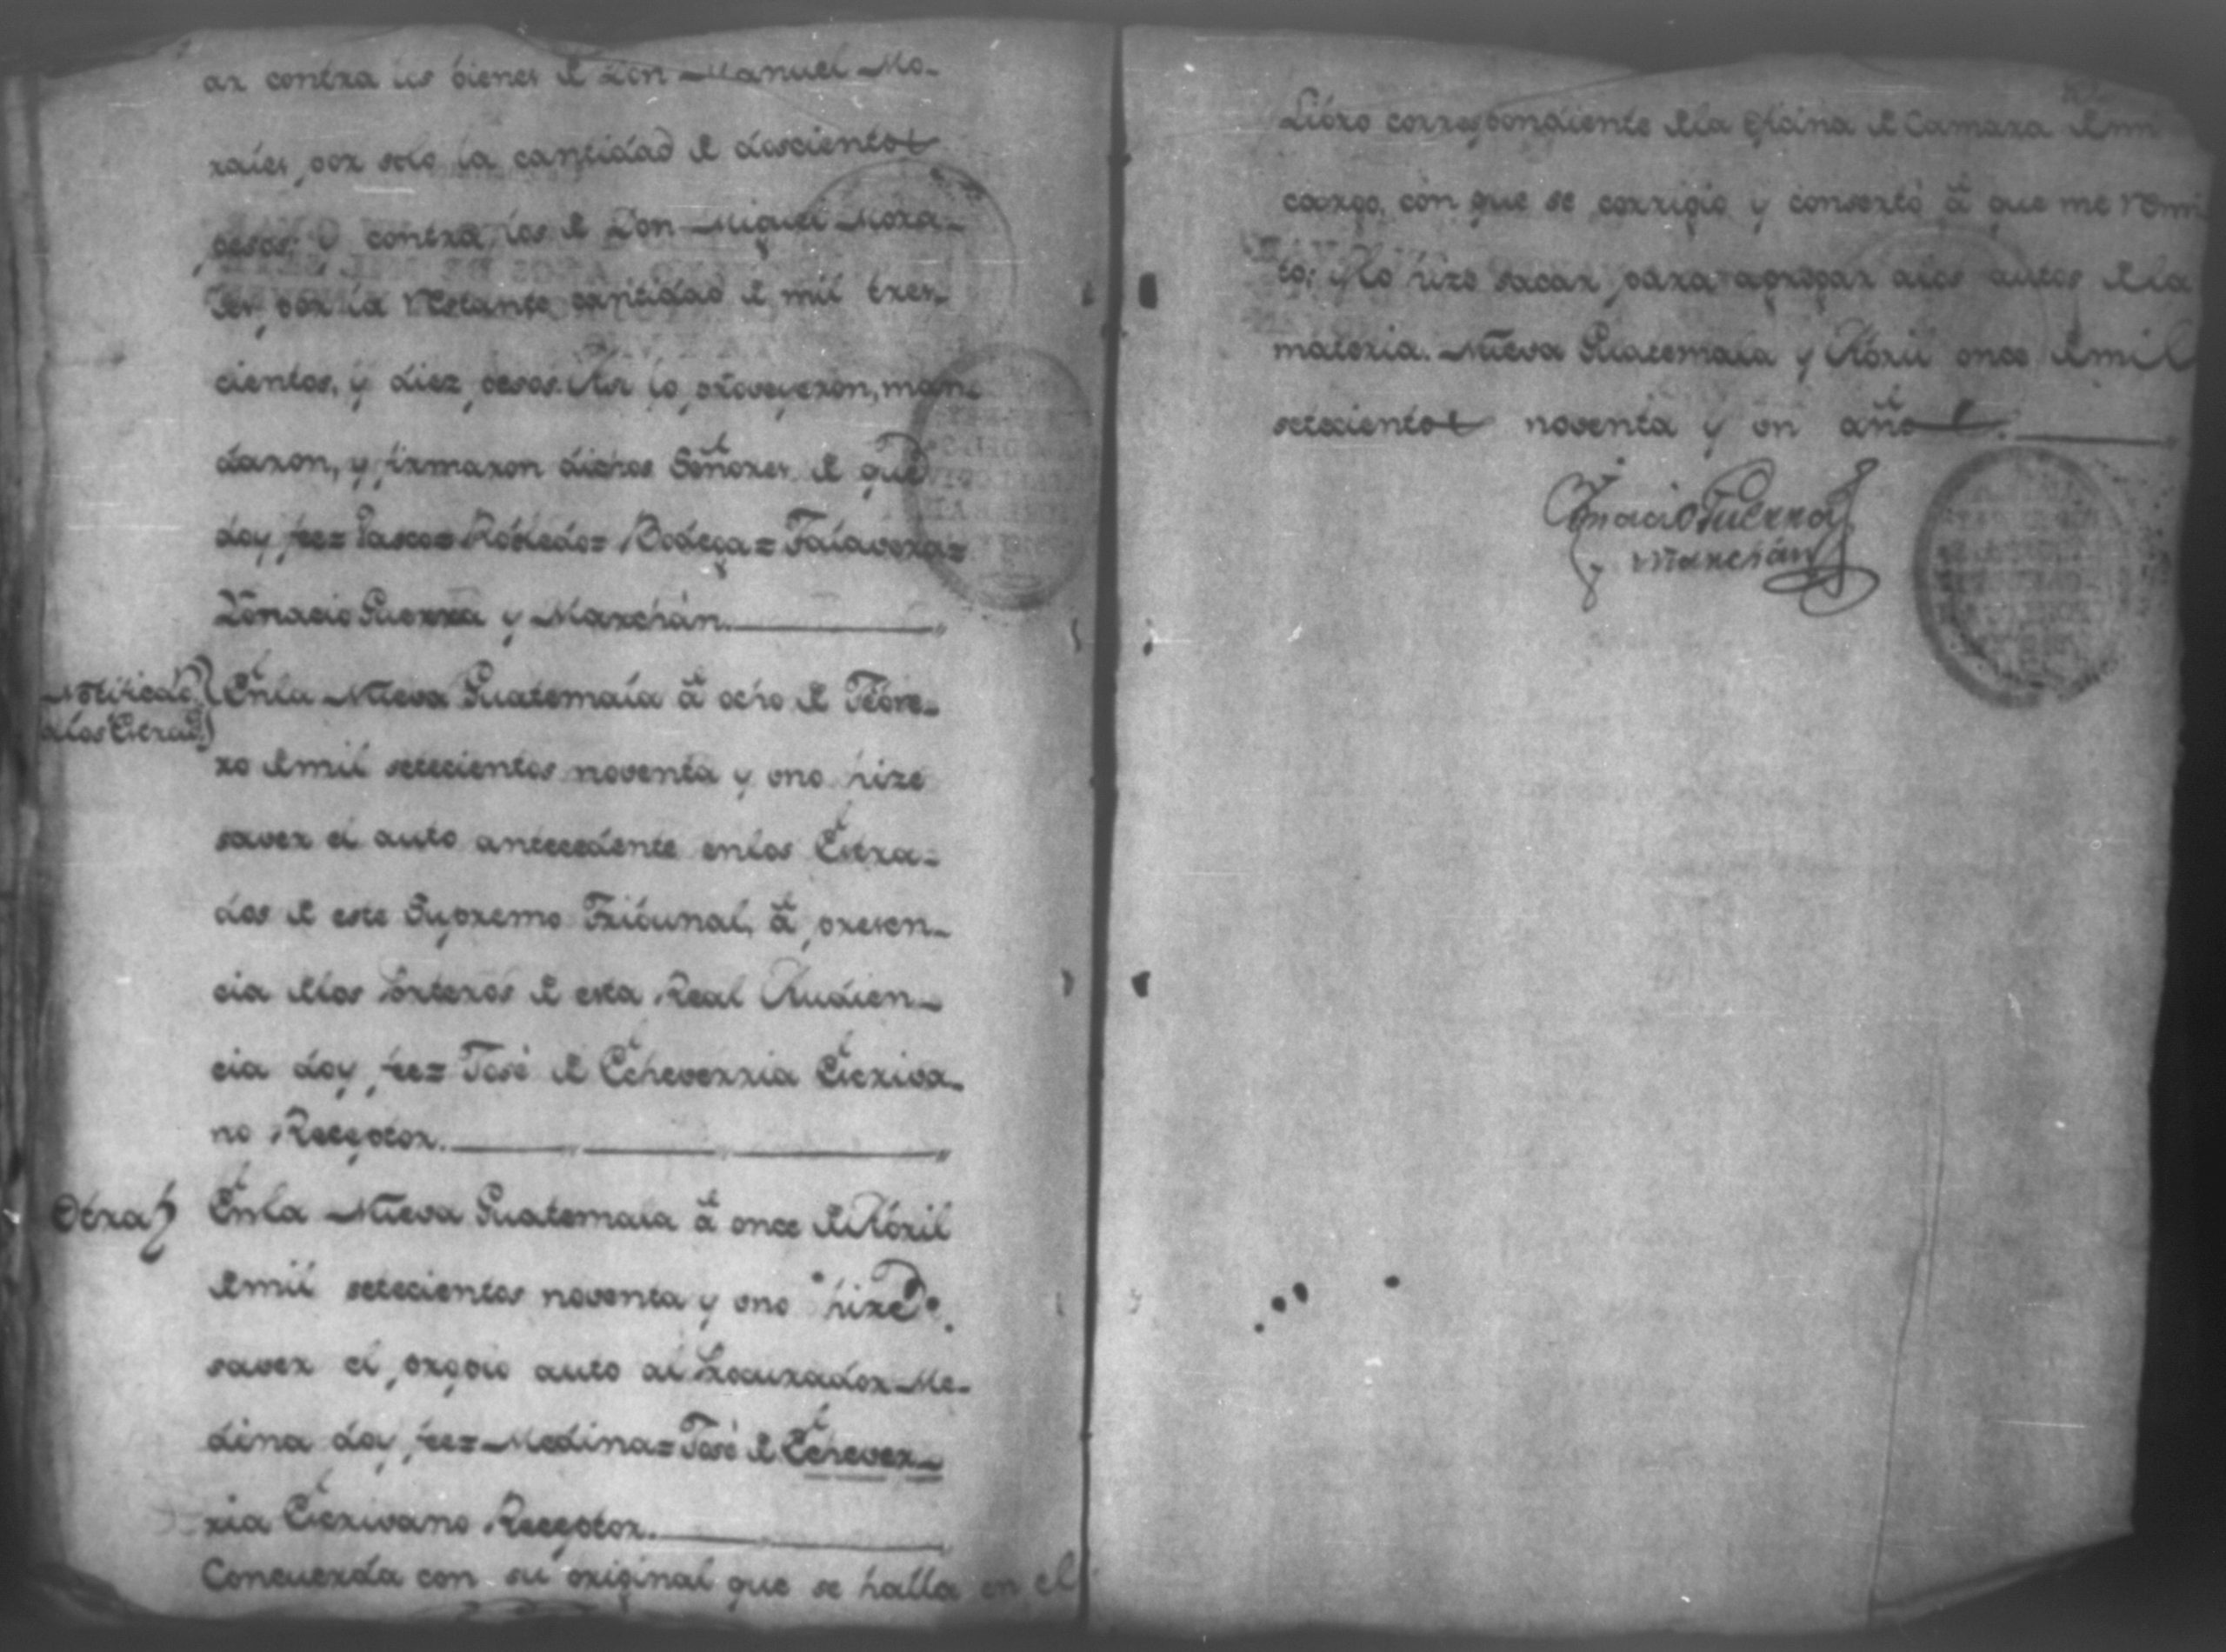 ar contra los bienes de Don Manuel Mo-
rales, por solo la cantidad de doscientos
pesos; y contra los de Don Miguel Mora-
les, por la restante cantidad de mil tres-
cientos, y diez pesos. Asi lo proveyeron, man-
daron, y firmaron dichos Señores de que
doy fee= Vasco= Robledo= Bodega= Talavera=
Ygnacio Guerra y Marchán.
Notificac.ⁿ
a los Estrad.ˢ
En la Nueva Guatemala á ocho de Febre-
ro de mil setecientos noventa y uno hize
saver el auto antecedente en los Estra-
dos de este Supremo Tribunal, á presen-
cia de los Porteros de esta Real Audien-
cia doy fee= José de Echeverria Escriva-
no Receptor.
Otra
En la Nueva Guatemala á once de Abril
de mil setecientos noventa y uno hize
saver el propio auto al Procurador Me-
dina doy fee= Medina= José de Echever-
ria Escrivano Receptor.
Concuerda con su original que se halla en el
Libro correspondiente de la oficina de Camara de mi
cargo, con que se corrigio y consertó á que me remi
to; y lo hize sacar para agregar a los autos de la
materia. Nueva Guatemala y Abril once de mil
setecientos noventa y un años.
Ignacio Guerra
y Marchán